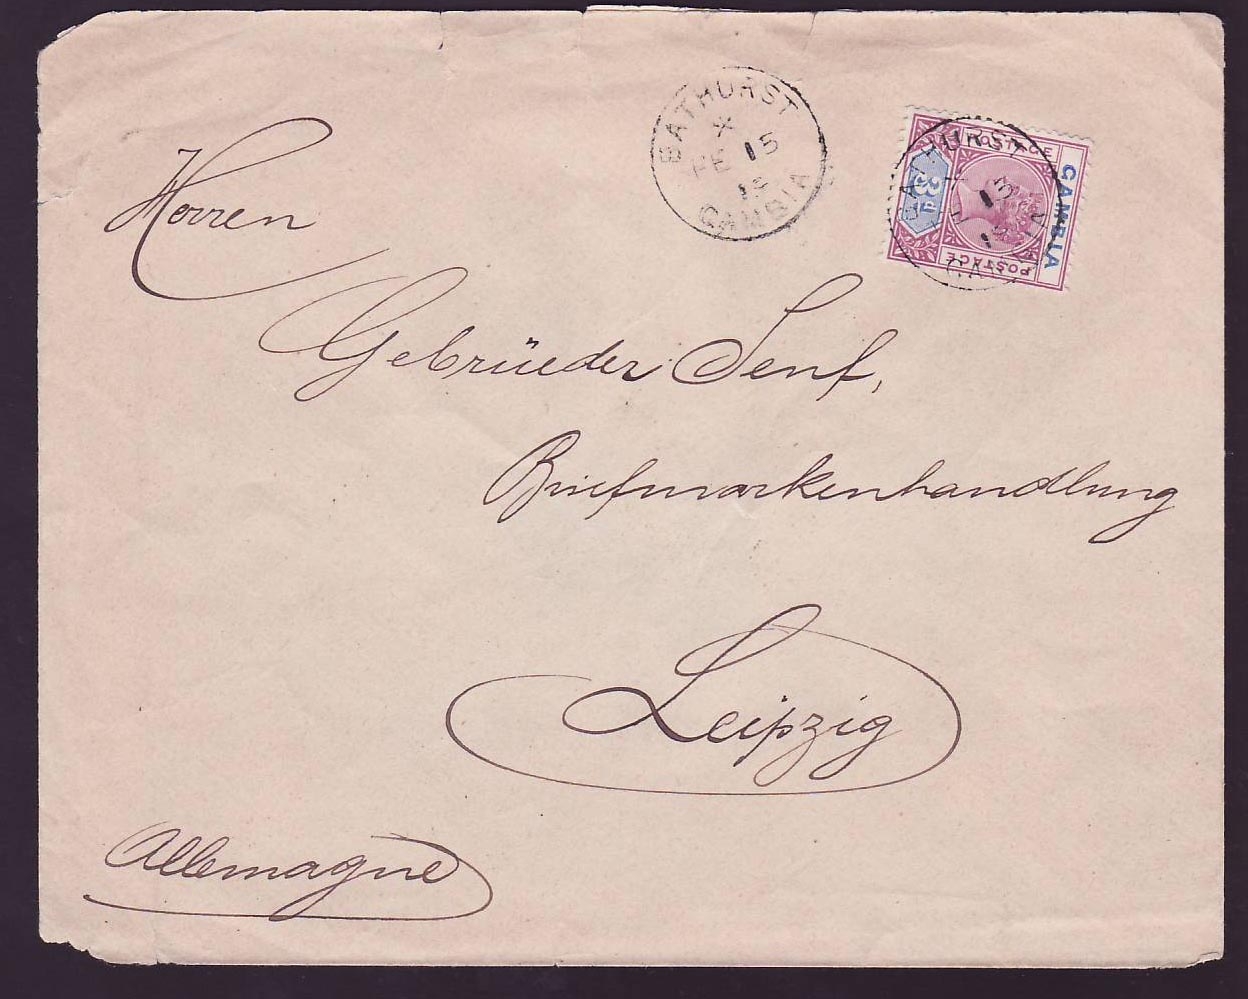 BATHURST
FE 15
GAMBIA
POSTAGE
GAMBIA
3d
POSTAGE
BATHURST
Herren
Gebrüeder Senf,
Briefmarkenhandlung
Leipzig
Allemagne